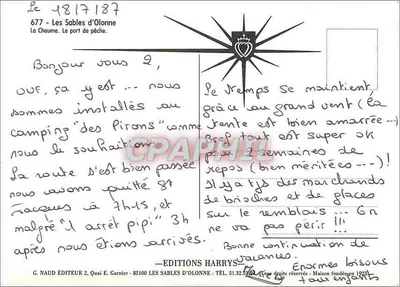 Le 18/7/87
677 - Les Sables d'Olonne
La Chaume. Le port de pêche.
Bonjour vous 2,
ouf, ça y est... nous
sommes installés au
camping "des Pirons" comme
nous le souhaitions.
La route s'est bien passée
nous avons quitté St
Jacques à 7h-15, et
malgré "1 arrêt pipi" 3h
après nous étions arrivés.
Le temps se maintient,
grâce au grand vent (la
tente est bien amarrée --)
Bref tout est super ok
pour semaines de
repos (bien méritées ---)!
Il y a tjs des marchands
de brioches et de glaces
sur le remblais... On
ne va pas périr !!!
Bonne continuation de
vacances.
Énormes bisous
enfants
CPAPHIL
—EDITIONS HARRYS—
G. NAUD ÉDITEUR 2, Quai E. Garnier - 85100 LES SABLES D'OLONNE - TÉL. 51.32 droits réservés - Maison fondée en